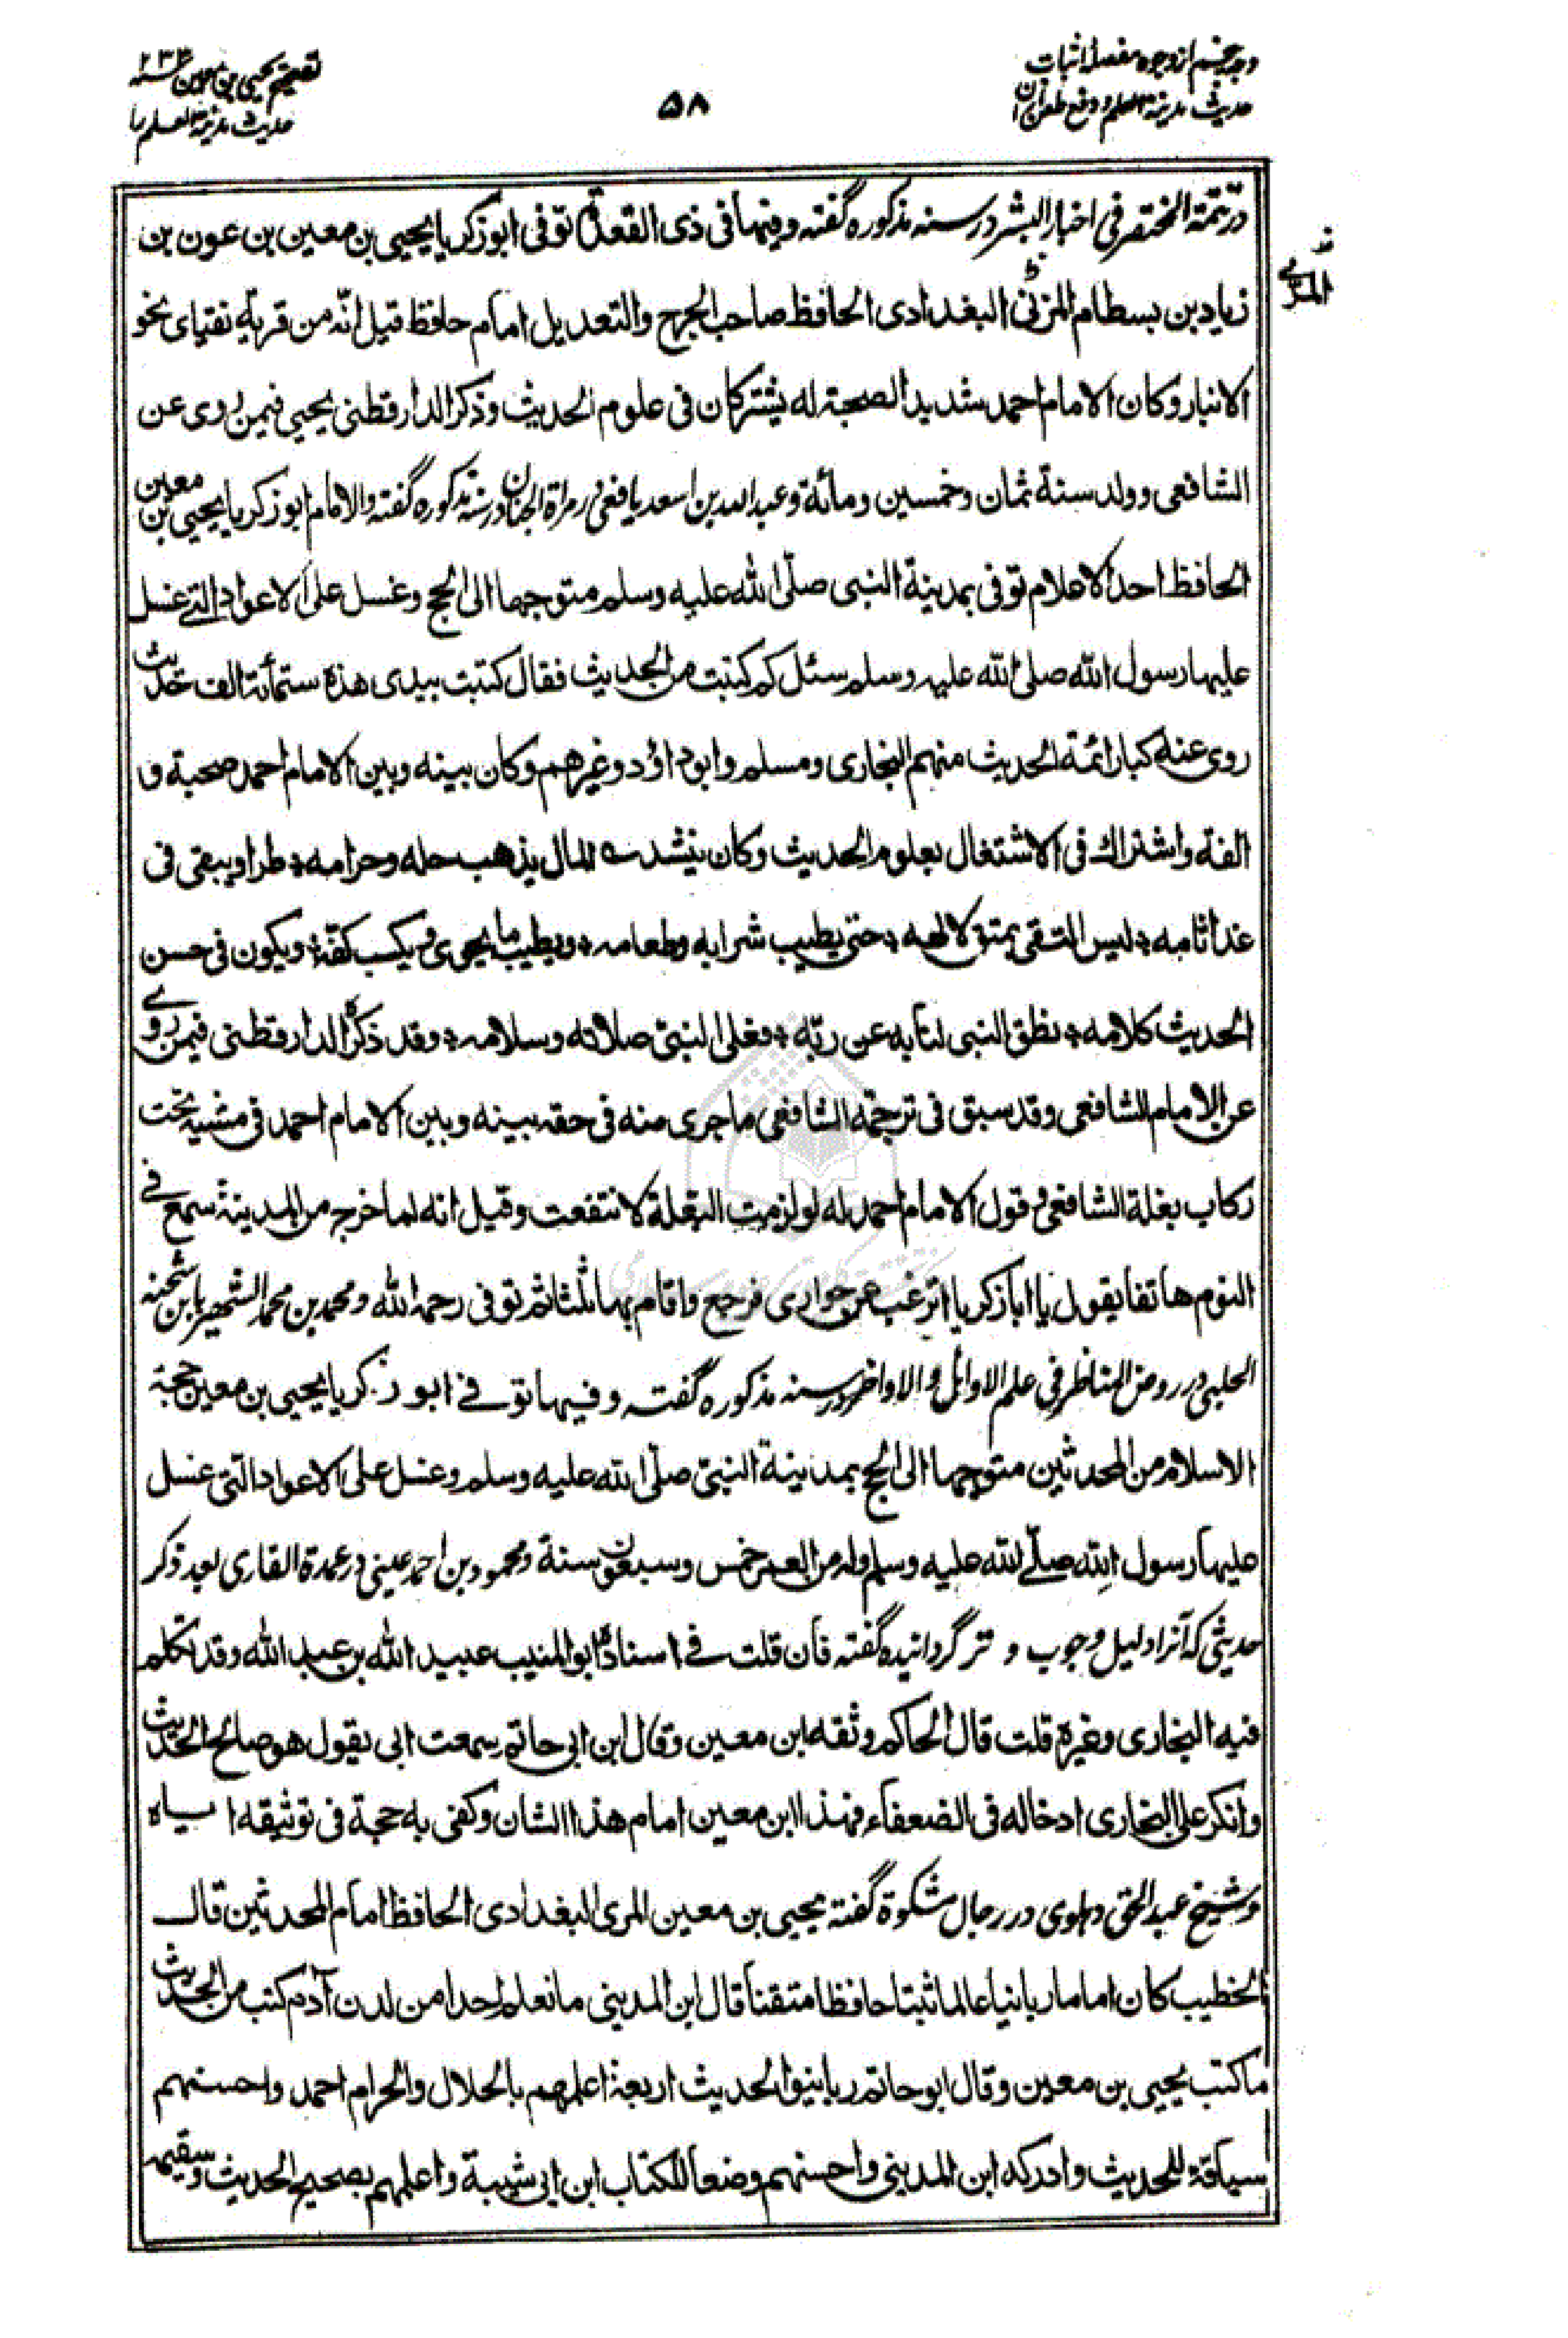 وجه پنجم از وجوه مفصله اثبات
حدیث مدینة العلم و دفع طعن ران
۵۸
تصحیح یحیی بن معین
حدیث مدینة العلم را
در تتمة المختصر فی اخبار البشر در سنه مذکوره گفته و فیها فی ذی القعدة توفی ابو زکریا یحیی بن معین بن عون بن
زیاد بن بسطام المزنی البغدادی الحافظ صاحب الجرح والتعدیل امام حافظ قیل انّه من قریة نقیای نحو
المری
الانبار وکان الامام احمد شدید الصحبة له یشترکان فی علوم الحدیث وذکر الدارقطنی یحیی فیمن روی عن
الشافعی وولد سنة ثمان وخمسین ومائة وعبد الله بن اسعد یافعی در مرآة الجنان در سنه مذکوره گفته والامام ابو زکریا یحیی بن معین
الحافظ احد الاعلام توفی بمدینة النبی صلّی الله علیه وسلم متوجها الی الحج وغسل علی الاعواد التے غسل
علیها رسول الله صلی الله علیه وسلم سئل کم کتبت من الحدیث فقال کتبت بیدی هذه ستمأئة الف حدیث
روی عنه کبار ائمة الحدیث منهم البخاری ومسلم وابو داؤد وغیرهم وکان بینه وبین الامام احمد صحبة و
الفة واشتراك فی الاشتغال بعلوم الحدیث وکان ینشد ے المال یذهب حله وحرامه ؛ طرا ویبقی فی
غد اثامه ؛ لیس التقی بمتق لالهه ؛ حتی یطیب شرابه وطعامه ؛ ویطیب ما یحوی ویکسب کفّه ؛ ویکون فی حسن
الحدیث کلامه ؛ نطق النبی لنا به عن ربّه ؛ فعلی النبیّ صلاته وسلامه ؛ وقد ذکره الدارقطنی فیمن روے
عن الامام الشافعی وقد سبق فی ترجمة الشافعی ماجری منه فی حقه بینه وبین الامام احمد فی مشیه تحت
رکاب بغلة الشافعی وقول الامام احمد له لو لزمت البغلة لانتفعت وقیل انه لما خرج من المدینة سمع فے
النوم هاتفا یقول یا ابا زکریا اترغب عن جواری فرجع واقام بها ثلثا ثم توفی رحمه الله ومحمد بن محمد الشهیر بابن شحنه
الحلبی در روض المناظر فی علم الاوائل والاواخر در سنه مذکوره گفته وفیها توفے ابو زکریا یحیی بن معین حجة
الاسلام من المحدثین متوجها الی الحج بمدینة النبیّ صلّی الله علیه وسلم وغسل علی الاعواد التی غسل
علیها رسول الله صلّے الله علیه وسلم وله من العمر خمس وسبعون سنة ومحمود بن احمد عینی در عمدة القاری بعد ذکر
حدیثی که آنرا دلیل وجوب وتر گردانیده گفته فان قلت فے اسناده ابو المنیب عبید الله بن عبد الله وقد تکلم
فیه البخاری وغیره قلت قال الحاکم وثقه ابن معین وقال ابن ابی حاتم سمعت ابی یقول هو صالح الحدیث
وانکر علی البخاری ادخاله فی الضعفاء فهذا ابن معین امام هذا الشان وکفی به حجة فی توثیقه ایاه
وشیخ عبد الحق دهلوی در رجال مشکوة گفته یحیی بن معین المری البغدادی الحافظ امام المحدثین قال
الخطیب کان اماما ربانیا عالما ثبتا حافظا متقنا قال ابن المدینی ما نعلم احدا من لدن آدم کتب من الحدیث
ما کتب یحیی بن معین وقال ابو حاتم ربانیو الحدیث اربعة اعلمهم بالحلال والحرام احمد واحسنهم
سیاقة للحدیث وادرکه ابن المدینی واحسنهم وضعا للکتاب ابن ابی شیبة واعلمهم بصحیح الحدیث وسقیمه